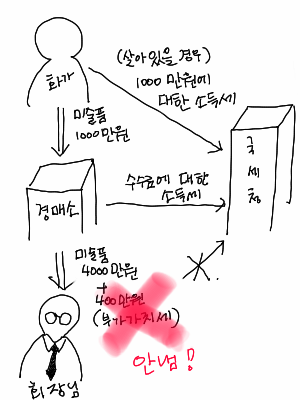 화가
(살아있을 경우)
1000 만원에
대한 소득세
미술품
1000만원
국세청
경매소
수수료에 대한
소득세
미술품
4000만원
+
400만원
(부가가치세)
안냄!
회장님